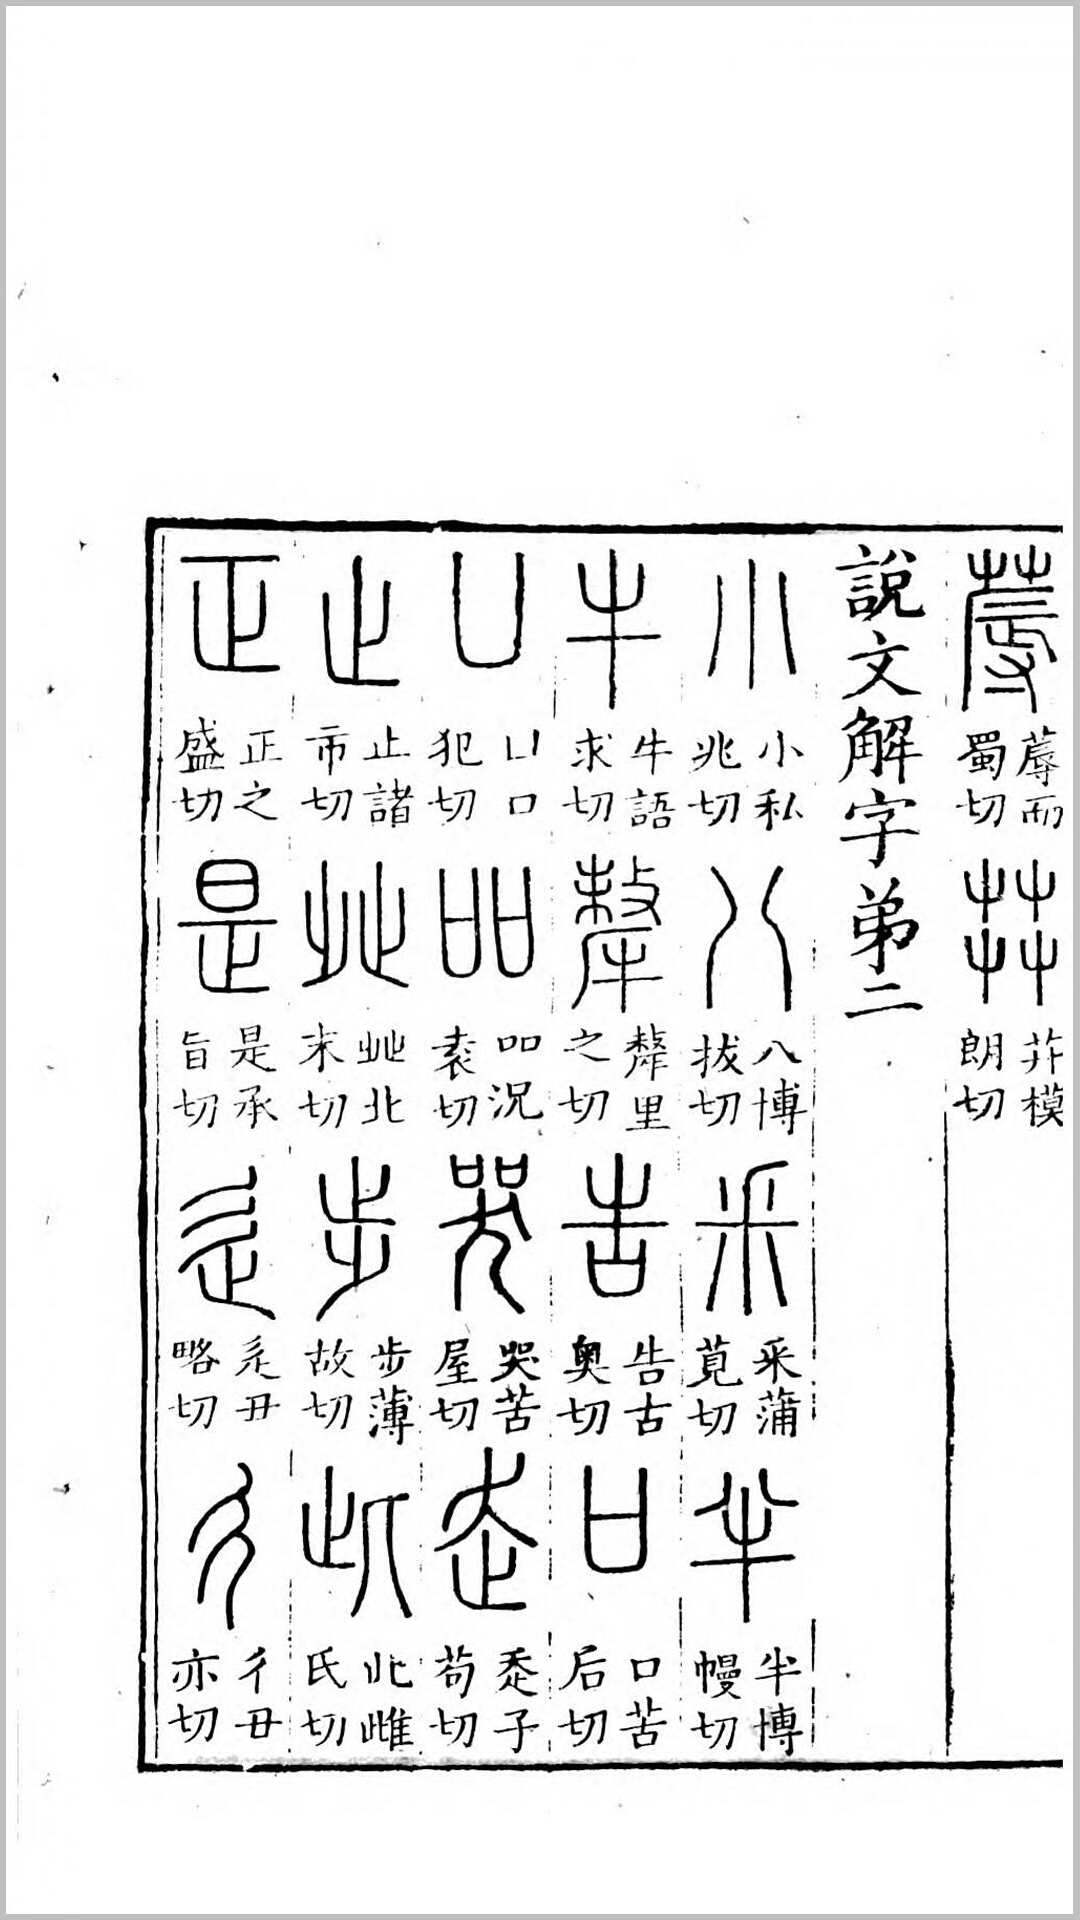 蓐蓐而蜀切茻茻模朗切
說文解字弟二
小小私兆切八八博拔切釆釆蒲莧切半半博幔切
牛牛語求切犛犛里之切告告古奧切口口苦后切
凵凵口犯切吅吅況袁切哭哭苦屋切走走子苟切
止止諸市切癶癶北末切步步薄故切此此雌氏切
正正之盛切是是承旨切辵辵丑略切彳彳丑亦切